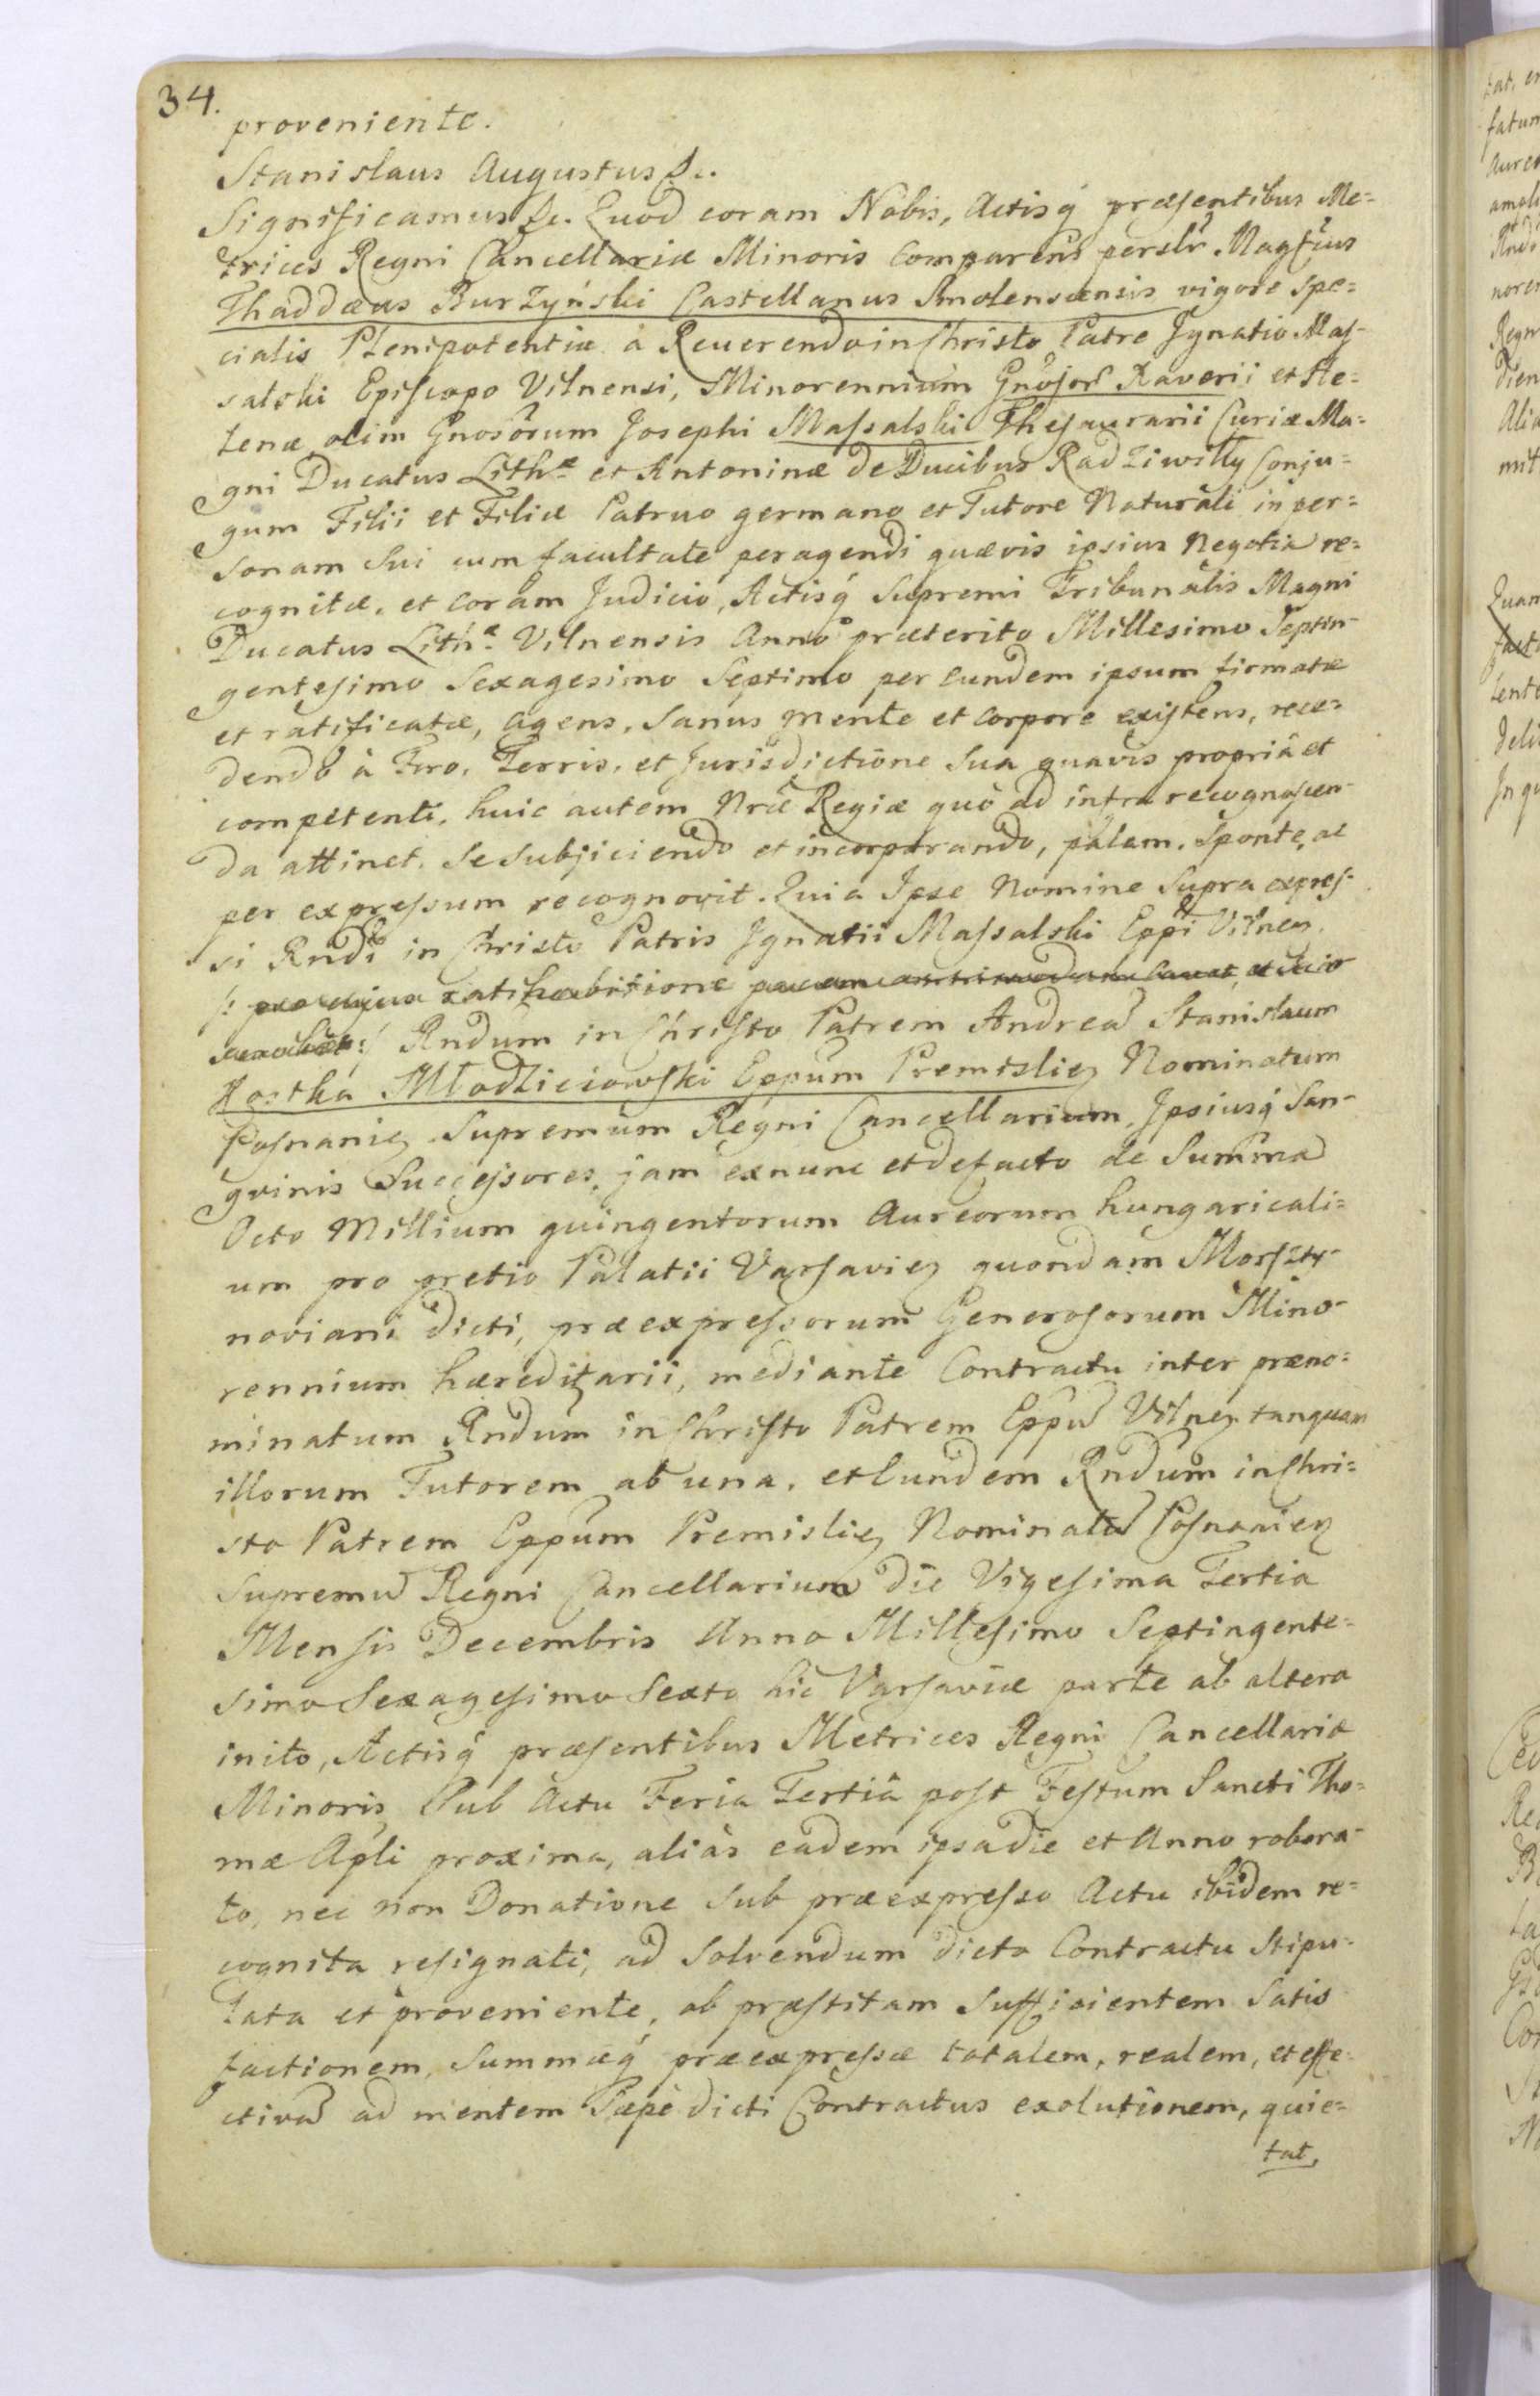 34.
proveniente.
Stanislaus Augustus &c.
Significamus &c. Quod coram Nobis, Actisq́ præsentibus Me=
trices Regni Cancellariæ Minoris Comparens perslr̃ Magf̃cus
Thaddæus Burzyński Castellanus Smolenscensis vigore Spe=
cialis Plenipotentiæ a Reuerendo in Christo Patre Ignatio Mas-
salski Episcopo Vilnensi, Minorennium Gñosor̃ Xaverii et He=
lenæ olim Gnosõrum Josephi Massalski Thesaurarii Curiæ Ma=
gni Ducatus Lithæ et Antoninæ de Ducibus Radziwilly Conju=
gum Filii et Filiæ Patruo germano et Tutore Naturali in per=
sonam Sui cum facultate peragendi quævis ipsius Negotia re=
cognitæ, et Coram Judicio, Actisq́ Supremi Tribunalis Magni
Ducatus Lithæ Vilnensis Anno præterito Millesimo Septin-
gentesimo Sexagesimo Septimo per Eundem ipsum firmatæ
et ratificatæ, agens, Sanus mente et Corpore existens, rece=
dendo à Foro, Terris, et Jurisdictione Sua quavis propriâ et
competenti, huic autem Nr̃æ Regiæ quò ad intra recognoscen-
da attinet, Se Subjiciendo et incorporando, palam, Sponte, ac
per expressum recognovit. Quia Ipse Nomine Supra expres-
si Rndi in Christo Patris Ignatii Massalski Eppi Vilnen.
/: pro cujus ratihabitione
:/ Rndum in Christo Patrem Andreã Stanislaum
Kostka Młodzieiowski Eppum Premislien Nominatum
Posnanien Supremum Regni Cancellarium, Ipsiusq́ San-
gvinis Successores, jam exnunc et defacto de Summa
Octo Millium quingentorum Aureorum hungaricali=
um pro pretio Palatii Varsavien quondam Morszty-
noviani dicti, præexpressorum Generosorum Mino-
rennium hæreditarii, mediante Contractu inter præno=
minatum Rndum in Christo Patrem Eppũ Vilnen tanquam
illorum Tutorem ab una, et Eundem Rndum in Chri=
sto Patrem Eppum Premislien Nominatũ Posnanien
Supremũ Regni Cancellarium die Vigesima Tertia
Mensis Decembris Anno Millesimo Septingente=
simo Sexagesimo Sexto hic Varsaviæ parte ab altera
inito, Actisq́ præsentibus Metrices Regni Cancellariæ
Minoris, Sub Actu Feria Tertiâ post Festum Sancti Tho=
mæ Apli proxima, aliàs eâdem ipsa die et Anno robora-
to, nec non Donatione Sub præexpresso Actu ibidem re=
cognita resignati, ad Solvendum dicto Contractu Stipu-
lata et proveniente, ob præstitam Sufficientem Satis
factionem, Summæq́ præexpressæ totalem, realem, et effe-
ctivã ad mentem Sæpè dicti Contractus exolutionem, quie=
tat,